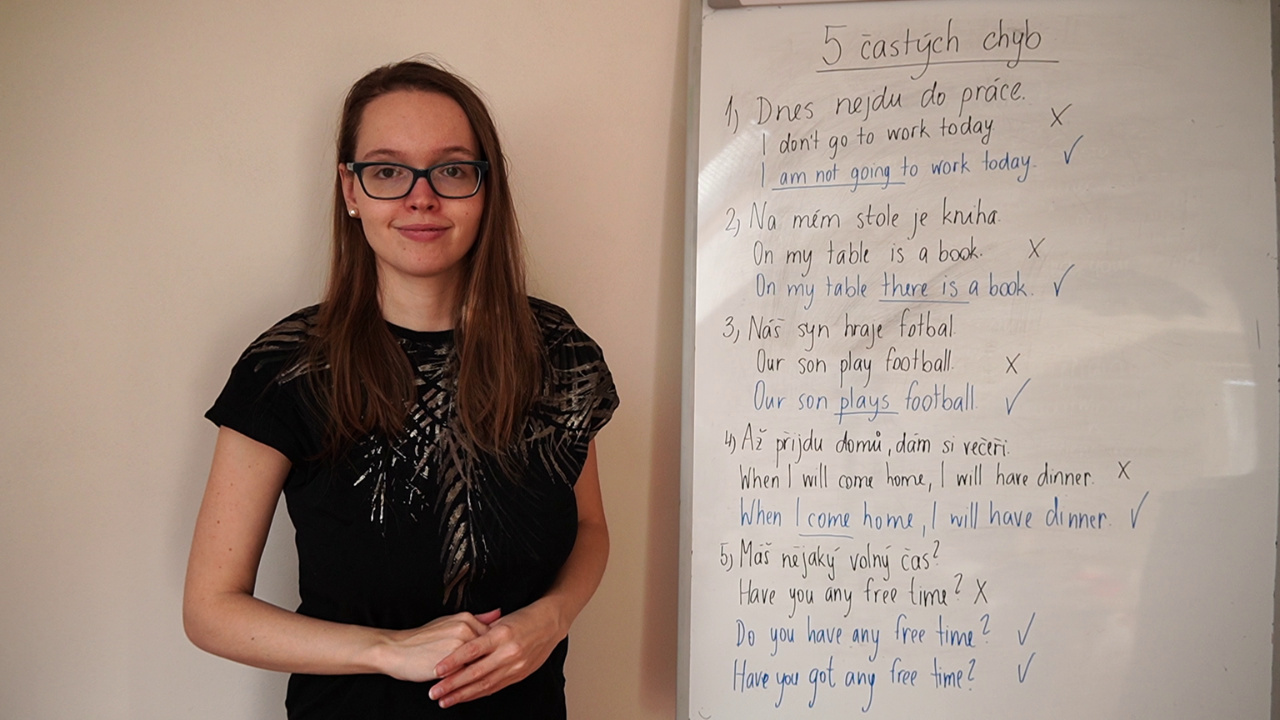 5 častých chyb
1) Dnes nejdu do práce.
I don't go to work today X
I am not going to work today. ✓
2) Na mém stole je kniha.
On my table is a book. X
On my table there is a book. ✓
3) Náš syn hraje fotbal.
Our son play football. X
Our son plays football. ✓
4) Až přijdu domů, dám si večeři.
When I will come home, I will have dinner. X
When I come home, I will have dinner. ✓
5) Máš nějaký volný čas?
Have you any free time? X
Do you have any free time? ✓
Have you got any free time? ✓